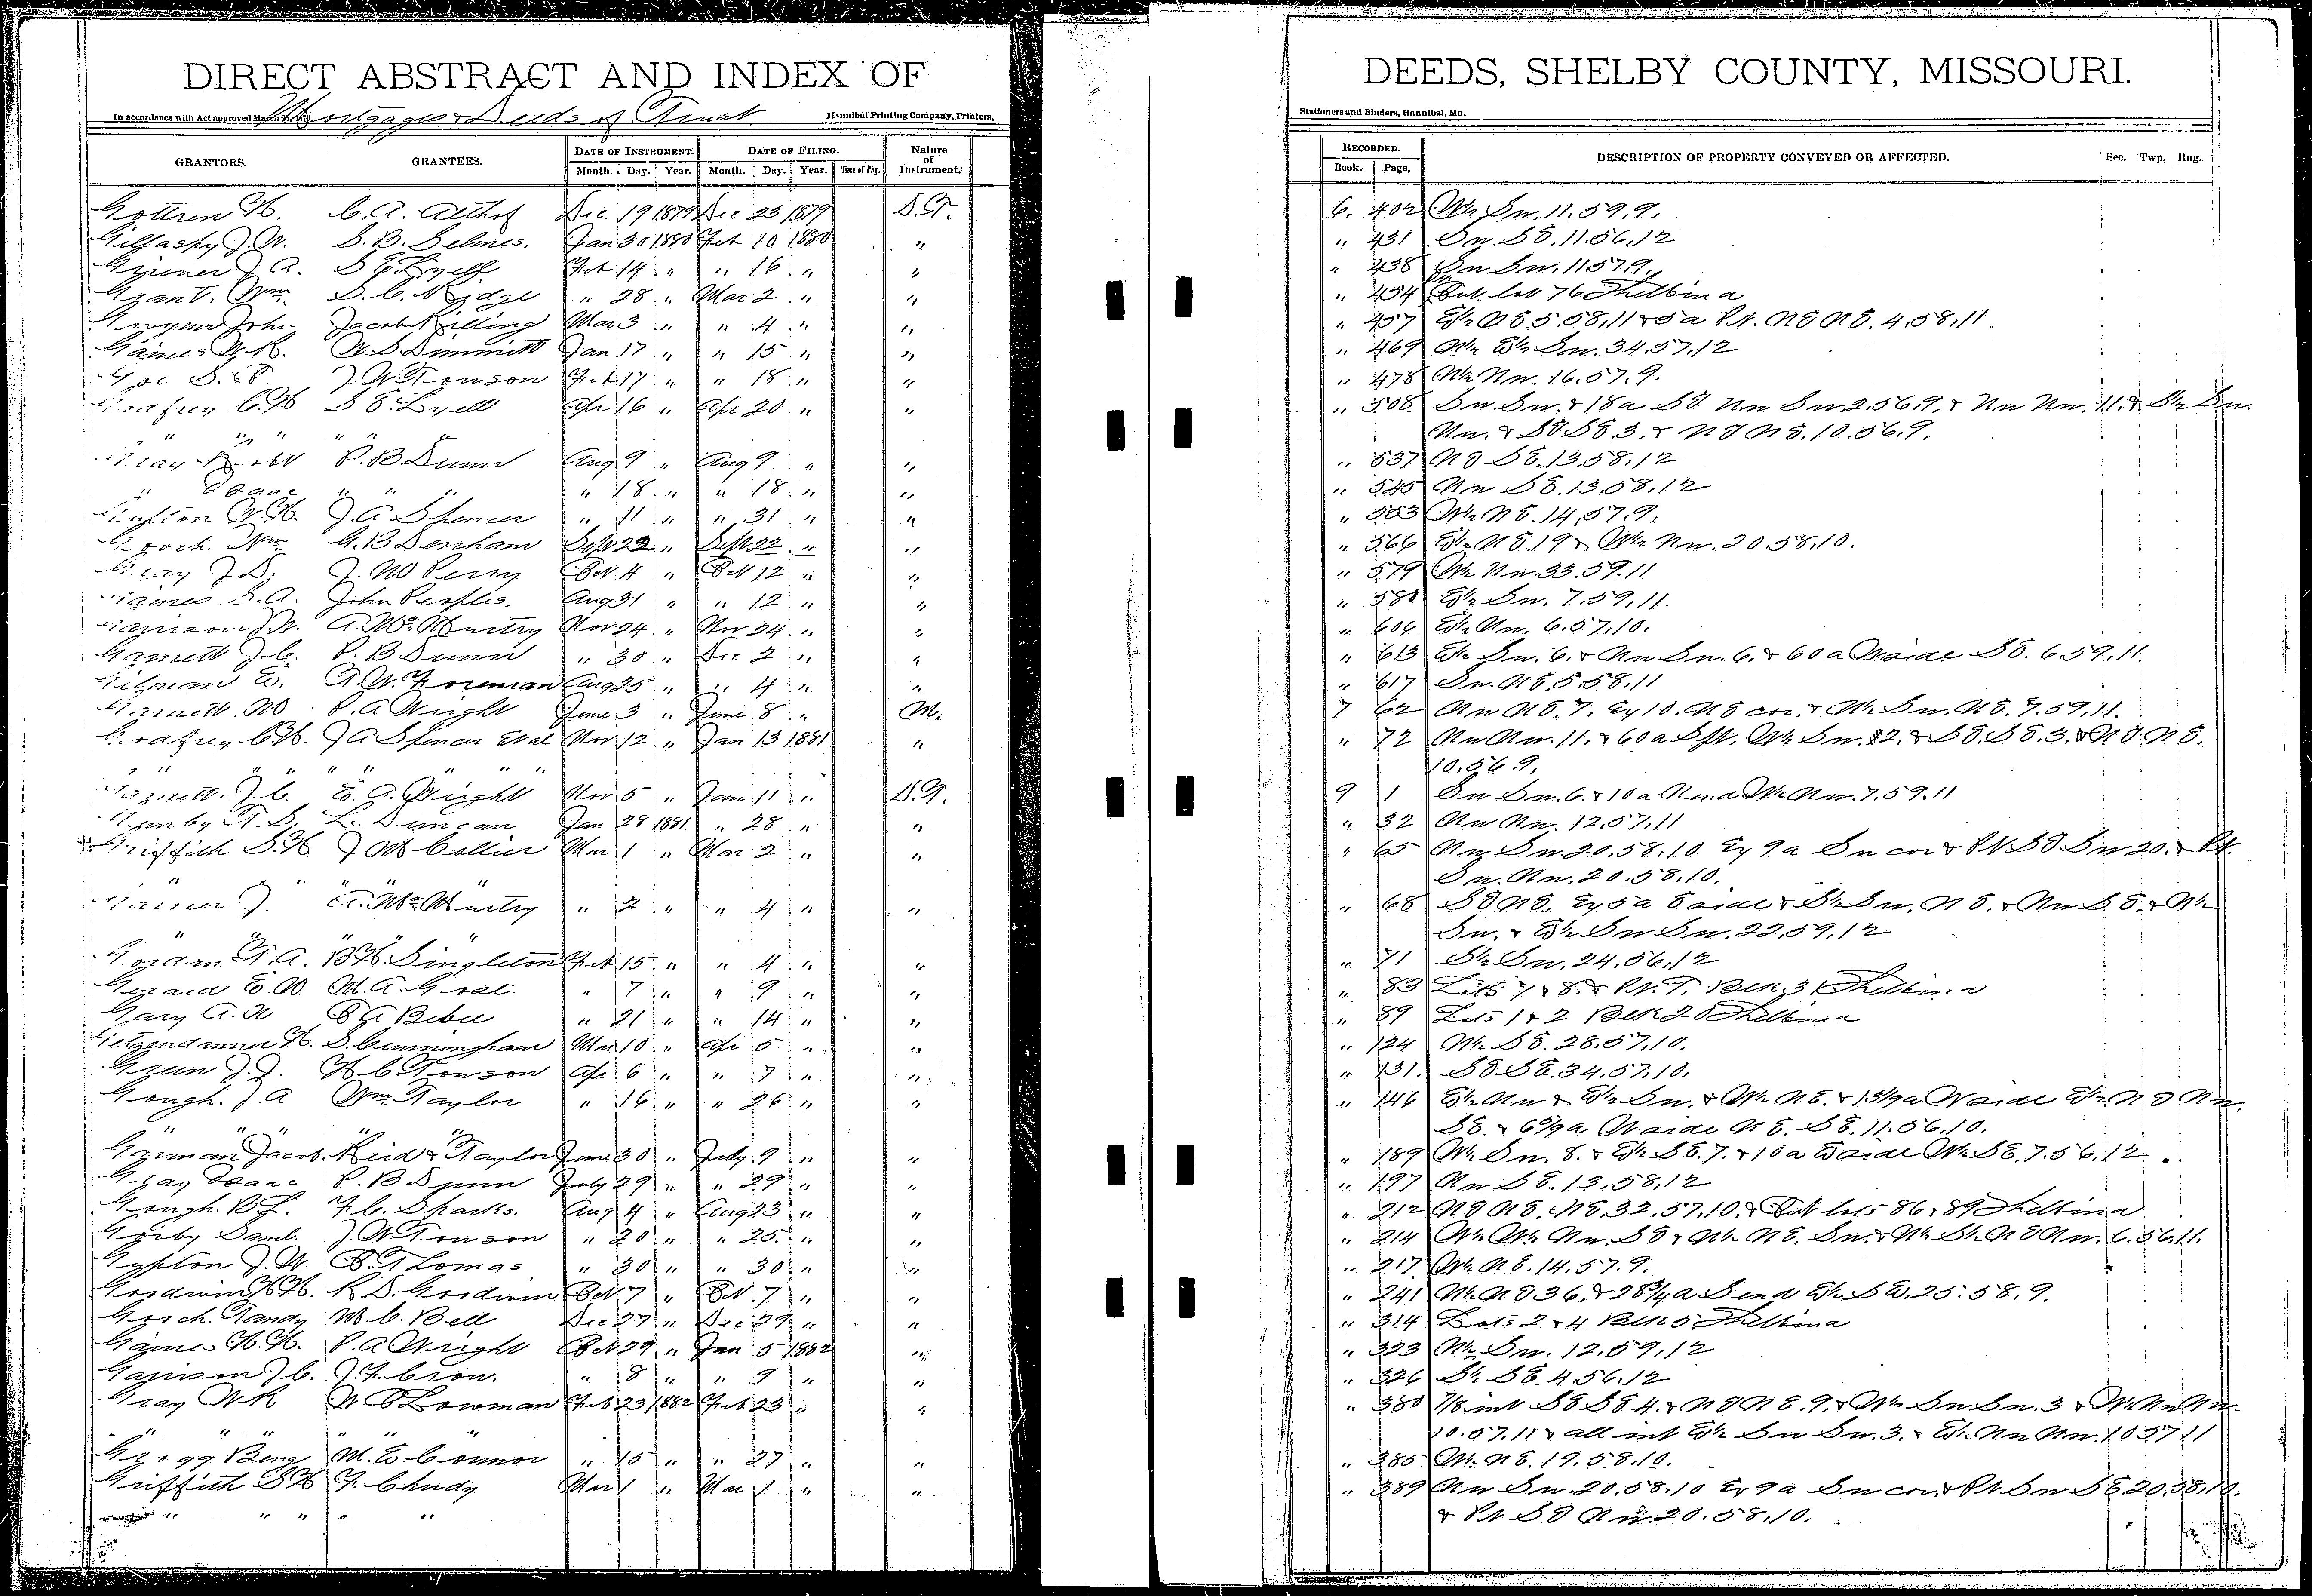 DIRECT ABSTRACT AND INDEX OF DEEDS, SHELBY COUNTY, MISSOURI.
Mortgages & Deeds of Trust
In accordance with Act approved March Hannibal Printing Company, Printers, Stationers and Binders, Hannibal, Mo.
GRANTORS. GRANTEES. DATE OF INSTRUMENT. DATE OF FILING. Nature of Instrument. RECORDED. DESCRIPTION OF PROPERTY CONVEYED OR AFFECTED. Sec. Twp. Rng.
Month. Day. Year. Month. Day. Year. Time of Day. Book. Page.
H. C. A. Althof Dec 19 1879 Dec 23 1879 D.T. 6. 402 Sw. 11. 59. 9.
Gillaspy J. W. S. B. Selmes. Jan 30 1880 Feb 10 1880 " " 431 Sw. SE. 11. 56. 12
J. A. S E Lyell Feb 14 " " 16 " " " 438 Sw. 11 57 9.
Grant. Wm. S. C. " 28 " Mar 2 " " " 454 Out lot 76 Shelbina
Gwynn John Jacob Mar 3 " " 4 " " " 457 NE. 5. 58. 11 & 5 a Pt. NE NE. 4. 58. 11
Gaines W. R. W. S. Dimmitt Jan 17 " " 15 " " " 469 Sw. 34. 57. 12
S. P. J. W. Towson Feb 17 " " 18 " " " 478 Nw. 16. 57. 9.
Godfrey C. H S E. Lyell Apr 16 " Apr 20 " " " 508 Sw. Sw. & 18 a SE Nw Sw. 2. 56. 9. & Nw Nw. 11. & Sw.
" " " " " Nw. & SE SE. 3. & NE NE. 10. 56. 9.
Gray Robt P. B. Dunn Aug 9 " Aug 9 " " " 537 NE SE. 13. 58. 12
" Isaac " " " " 18 " " 18 " " " 545 Nw SE. 13. 58. 12
W. H. J. A Spencer " 11 " " 31 " " " 553 NE. 14. 57. 9.
Gooch. Wm G. B Denham Sept 22 " Sept 22 " " " 566 NE. 19 & Nw. 20. 58. 10.
Gray J. D. J. M Perry Oct 4 " Oct 12 " " " 579 Nw. 33. 59. 11
Gaines S. A. John Peoples. Aug 31 " " 12 " " " 580 Sw. 7. 59. 11.
Garrison J. W. A. McMurtry Nov 24 " Nov 24 " " " 606 Nw. 6. 57. 10.
Garnett J. C. P. B Dunn " 30 " Dec 2 " " " 613 Sw. 6. & Nw Sw. 6. & 60 a SE. 6 59. 11
Gilman E. T. W. Foreman Aug 25 " " 4 " " " 617 Sw. NE. 5. 58. 11
Garnett. M P. A Wright June 3 " June 8 " M. 7 62 Nw NE. 7. Ex 10. NE cor. & Sw. NE. 7. 59. 11.
Godfrey C H. J A Spencer Et al Nov 12 " Jan 13 1881 " " 72 Nw Nw. 11. & 60 a Sw. 2. & SE. SE. 3. & NE. NE.
" " " " " " 10. 56. 9.
Garnett. J. C. E. A. Wright Nov 5 " Jan 11 " D.T. 9 1 Sw Sw. 6. & 10 a Nw. 7. 59. 11
T. S. L. Duncan Jan 28 1881 " 28 " " " 32 Nw Nw. 12. 57. 11
Griffith S. H J M Collier Mar 1 " Mar 2 " " " 65 Nw Sw. 20. 58. 10 Ex 9 a Sw cor & Pt. SE Sw 20. & Pt.
" " " " " Sw. Nw. 20. 58. 10.
J. A. McMurtry " 2 " " 4 " " " 68 SE NE. Ex 5 a & Sw. NE. & Nw SE. &
" " " " " Sw. & Sw Sw. 22. 59. 12
Gordan T. A. B H Singleton Feb 15 " " 4 " " " 71 Sw. 24. 56. 12
E. M M. A. " 7 " " 9 " " " 83 Lots 7 & 8. & Pt. Blk 3 Shelbina
Gary A. W " 21 " " 14 " " " 89 Lots 1 & 2 Blk 20 Shelbina
Getzendanner H. S. Cunningham Mar 10 " Apr 5 " " " 124 SE. 28. 57. 10.
Green J. J. H C. Towson Apr 6 " " 7 " " " 131 SE SE. 34. 57. 10.
Gough. J. A Wm. Taylor " 16 " " 26 " " " 146 Nw & Sw. & NE. & a NE Nw.
" " " " " SE. & a NE. SE. 11. 56. 10.
Garman Jacob. Reid & Taylor June 30 " July 9 " " " 189 Sw. 8. & SE. 7. & 10 a SE. 7. 56. 12
Gray Isaac P. B Dunn July 29 " " 29 " " " 197 Nw SE. 13. 58. 12
Gough. B. L. F. C. Sparks. Aug 4 " Aug 23 " " " 212 NE NE. NE. 32. 57. 10. & Out lots 86 & 89 Shelbina
Gorby Saml. J. W Towson " 20 " " 25 " " " 214 Nw. SE & NE. Sw. & NE Nw. 6. 56. 11.
Gupton J. W. Lomas " 30 " " 30 " " " 217 NE. 14. 57. 9.
Goodwin H. R. D. Goodwin Oct 7 " Oct 7 " " " 241 NE 36. & a SE. 25. 58. 9.
Gooch. Tandy M. C. Bell Dec 27 " Dec 29 " " " 314 Lots 2 & 4 Blk 5 Shelbina
Gaines H. H. P. A Wright Oct 29 " Jan 5 1882 " " 323 Sw. 12. 59. 12
Garrison J. C. J. F. Crow. " 8 " " 9 " " " 326 SE. 4. 56. 12
Gray W R W Lowman Feb 23 1882 Feb 23 " " " 380 7/8 int SE SE 4. & NE NE. 9. & Sw Sw. 3 & Nw Nw.
" " " " " 10. 57. 11 & all int Sw Sw. 3. & Nw Nw. 10 57 11
Gregg Benj M. E Connor " 15 " " 27 " " " 385 NE. 19. 58. 10.
Griffith S H F. Chudy Mar 1 " Mar 1 " " " 389 Nw Sw. 20. 58. 10 Ex 9 a Sw cor. & Pt Sw SE 20. 58. 10.
" " " " " & Pt SE Nw. 20. 58. 10.